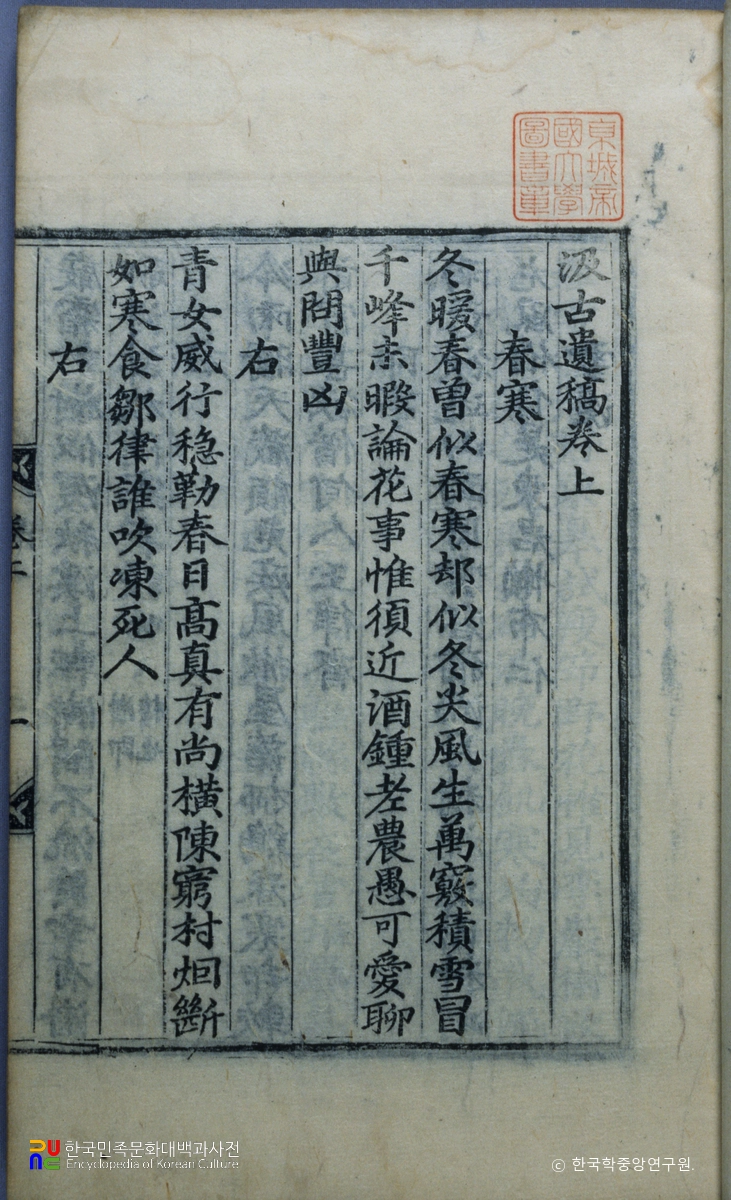 汲古遺稿卷上
春寒
冬暖春曾似春寒却似冬尖風生萬竅積雪冒
千峰未暇論花事惟須近酒鍾老農愚可愛聊
與問豐凶
右
青女威行穏勤春日高真有尚橫陳窮村烟斷
如寒食鄒律誰吹凍死人
右
卷上
一
京城帝
國大學
圖書章
한국민족문화대백과사전
Encyclopedia of Korean Culture
© 한국학중앙연구원.